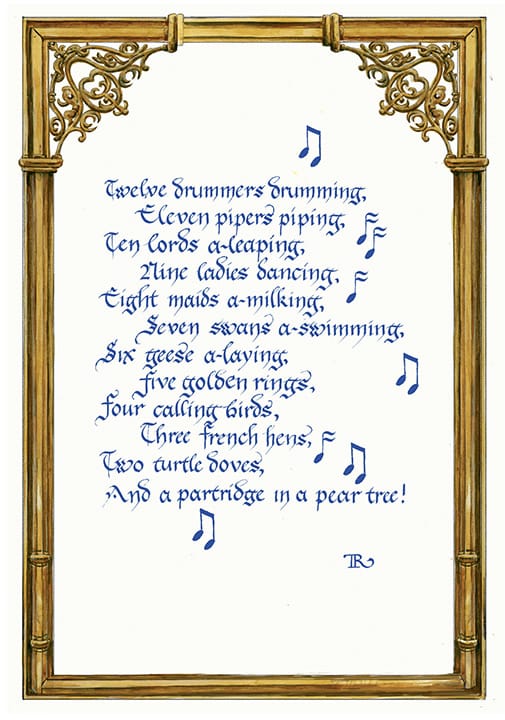 Twelve drummers drumming,
Eleven pipers piping,
Ten lords a-leaping,
Nine ladies dancing,
Eight maids a-milking,
Seven swans a-swimming,
Six geese a-laying,
Five golden rings,
Four calling birds,
Three french hens,
Two turtle doves,
And a partridge in a pear tree!
TR